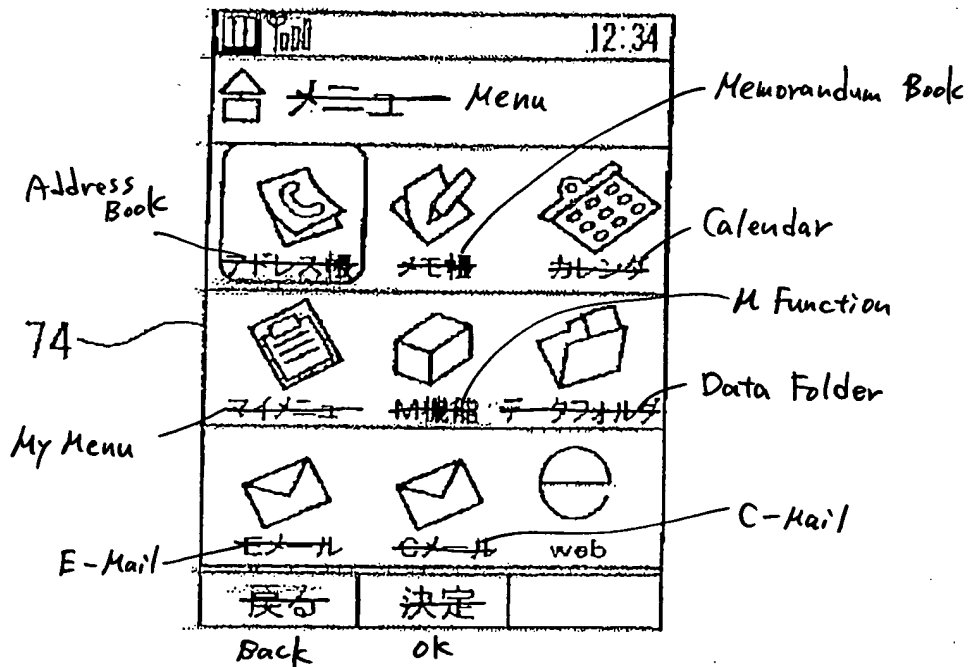 12:34
メニュー Menu
Memorandum Book
Address
Book
アドレス帳
メモ帳
カレンダ
Calendar
M Function
74
マイメニュー
M機能
データフォルダ
Data Folder
My Menu
Eメール
Cメール
web
C-Mail
E-Mail
戻る
決定
Back
OK